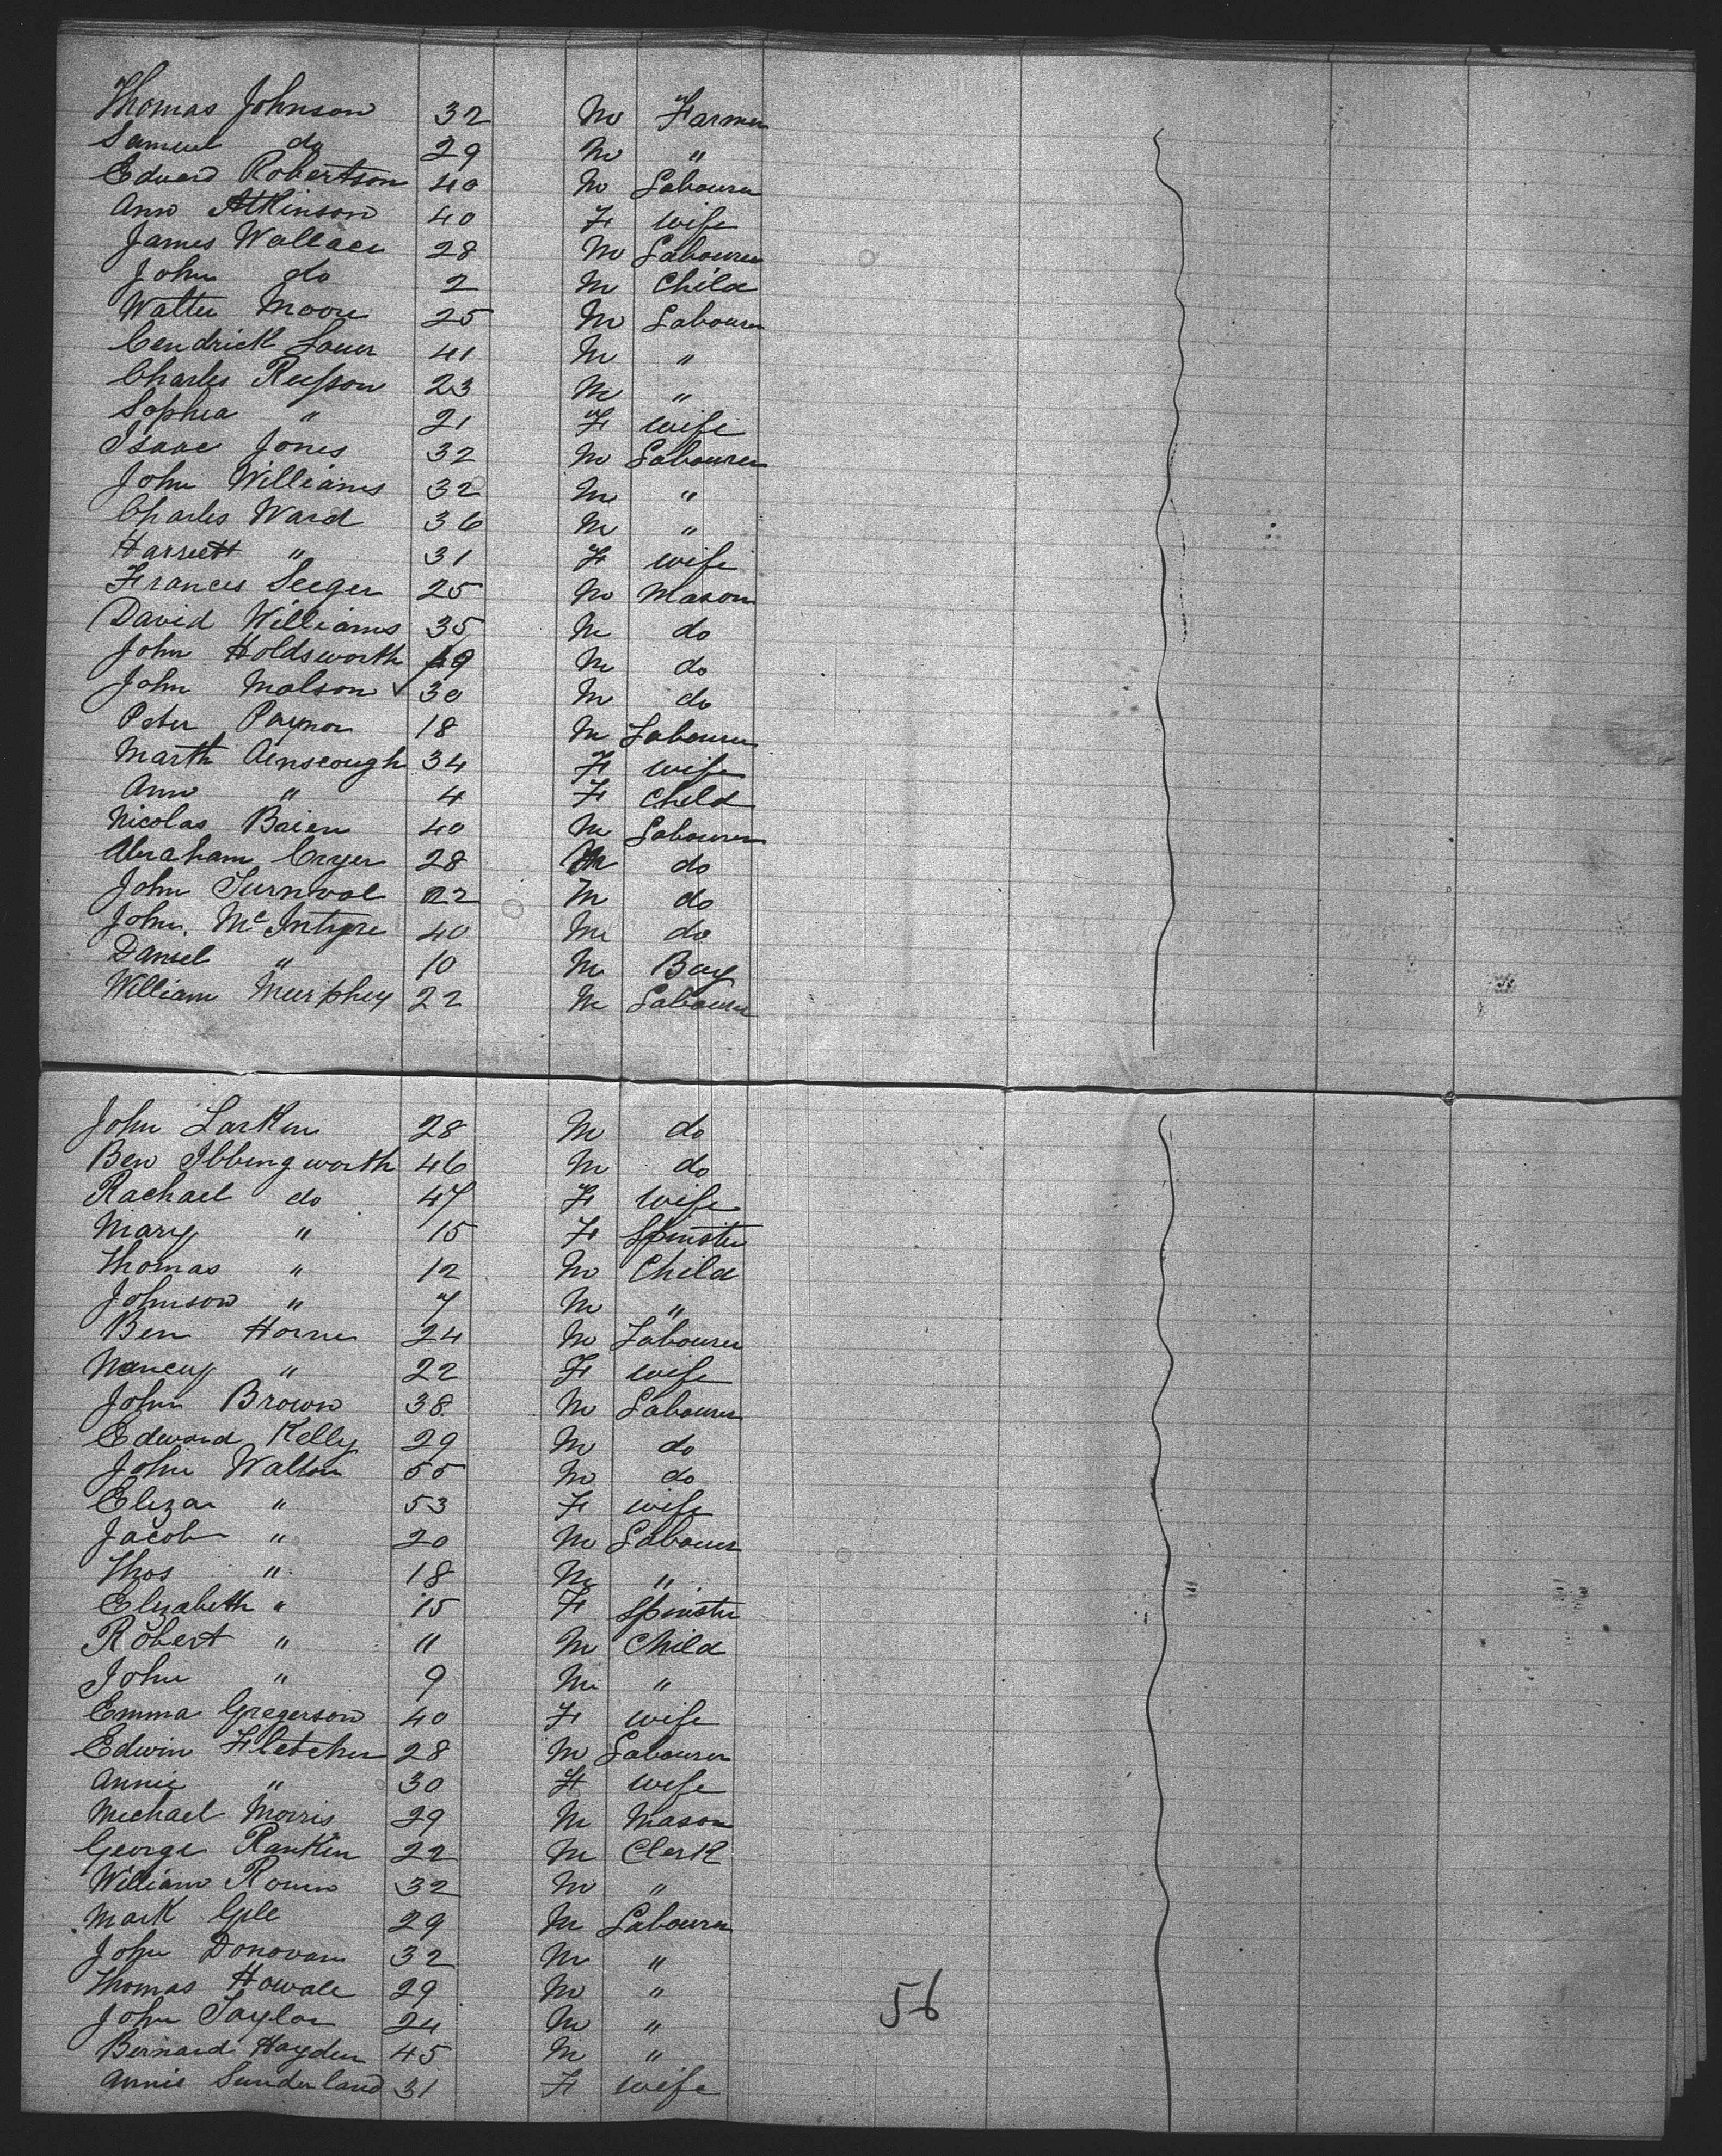 Thomas Johnson 32 M Farmer
Sameul do 29 M "
Edward Robertson 40 M Labourer
Ann Atkinson 40 F wife
James Wallace 28 M Labourer
John do 2 M Child
Walter Moore 25 M Labourer
Cendrick Lauer 41 M "
Charles 23 M "
Sophia " 21 F wife
Isaac Jones 32 M Labourer
John Williams 32 M "
Charles Ward 36 M "
Harriett " 31 F wife
Frances Seeger 25 M Mason
David Williams 35 M do
John Holdsworth 49 M do
John Molson 30 M do
Peter Paynor 18 M Labourer
Marth Ainscough 34 F wife
Ann " 4 F Child
Nicolas Baien 40 M Labourer
Abraham Cryer 28 M do
John Turnwal 22 M do
John McIntyre 40 M do
Daniel " 10 M Boy
William Murphey 22 M Labourer
John Larkin 28 M do
Ben Ibbingworth 46 M do
Rachael do 47 F wife
Mary " 15 F Spinster
Thomas " 12 M Child
Johnson " 7 M "
Ben Horne 24 M Labourer
Nancy " 22 F wife
John Brown 38 M Labourer
Edward Kelly 29 M do
John Walton 55 M do
Eliza " 53 F wife
Jacob " 20 M Labourer
Thos " 18 M "
Elizabeth " 15 F Spinster
Robert " 11 M Child
John " 9 M "
Emma Gregerson 40 F wife
Edwin Fletcher 28 M Labourer
Annie " 30 F wife
Michael Morris 29 M Mason
George Rankin 22 M Clerk
William 32 M "
Mark Gile 29 M Labourer
John Donovan 32 M "
Thomas Howale 29 M "
John Taylor 24 M "
Bernard Hayden 45 M "
Annie Sunderland 31 F wife
56